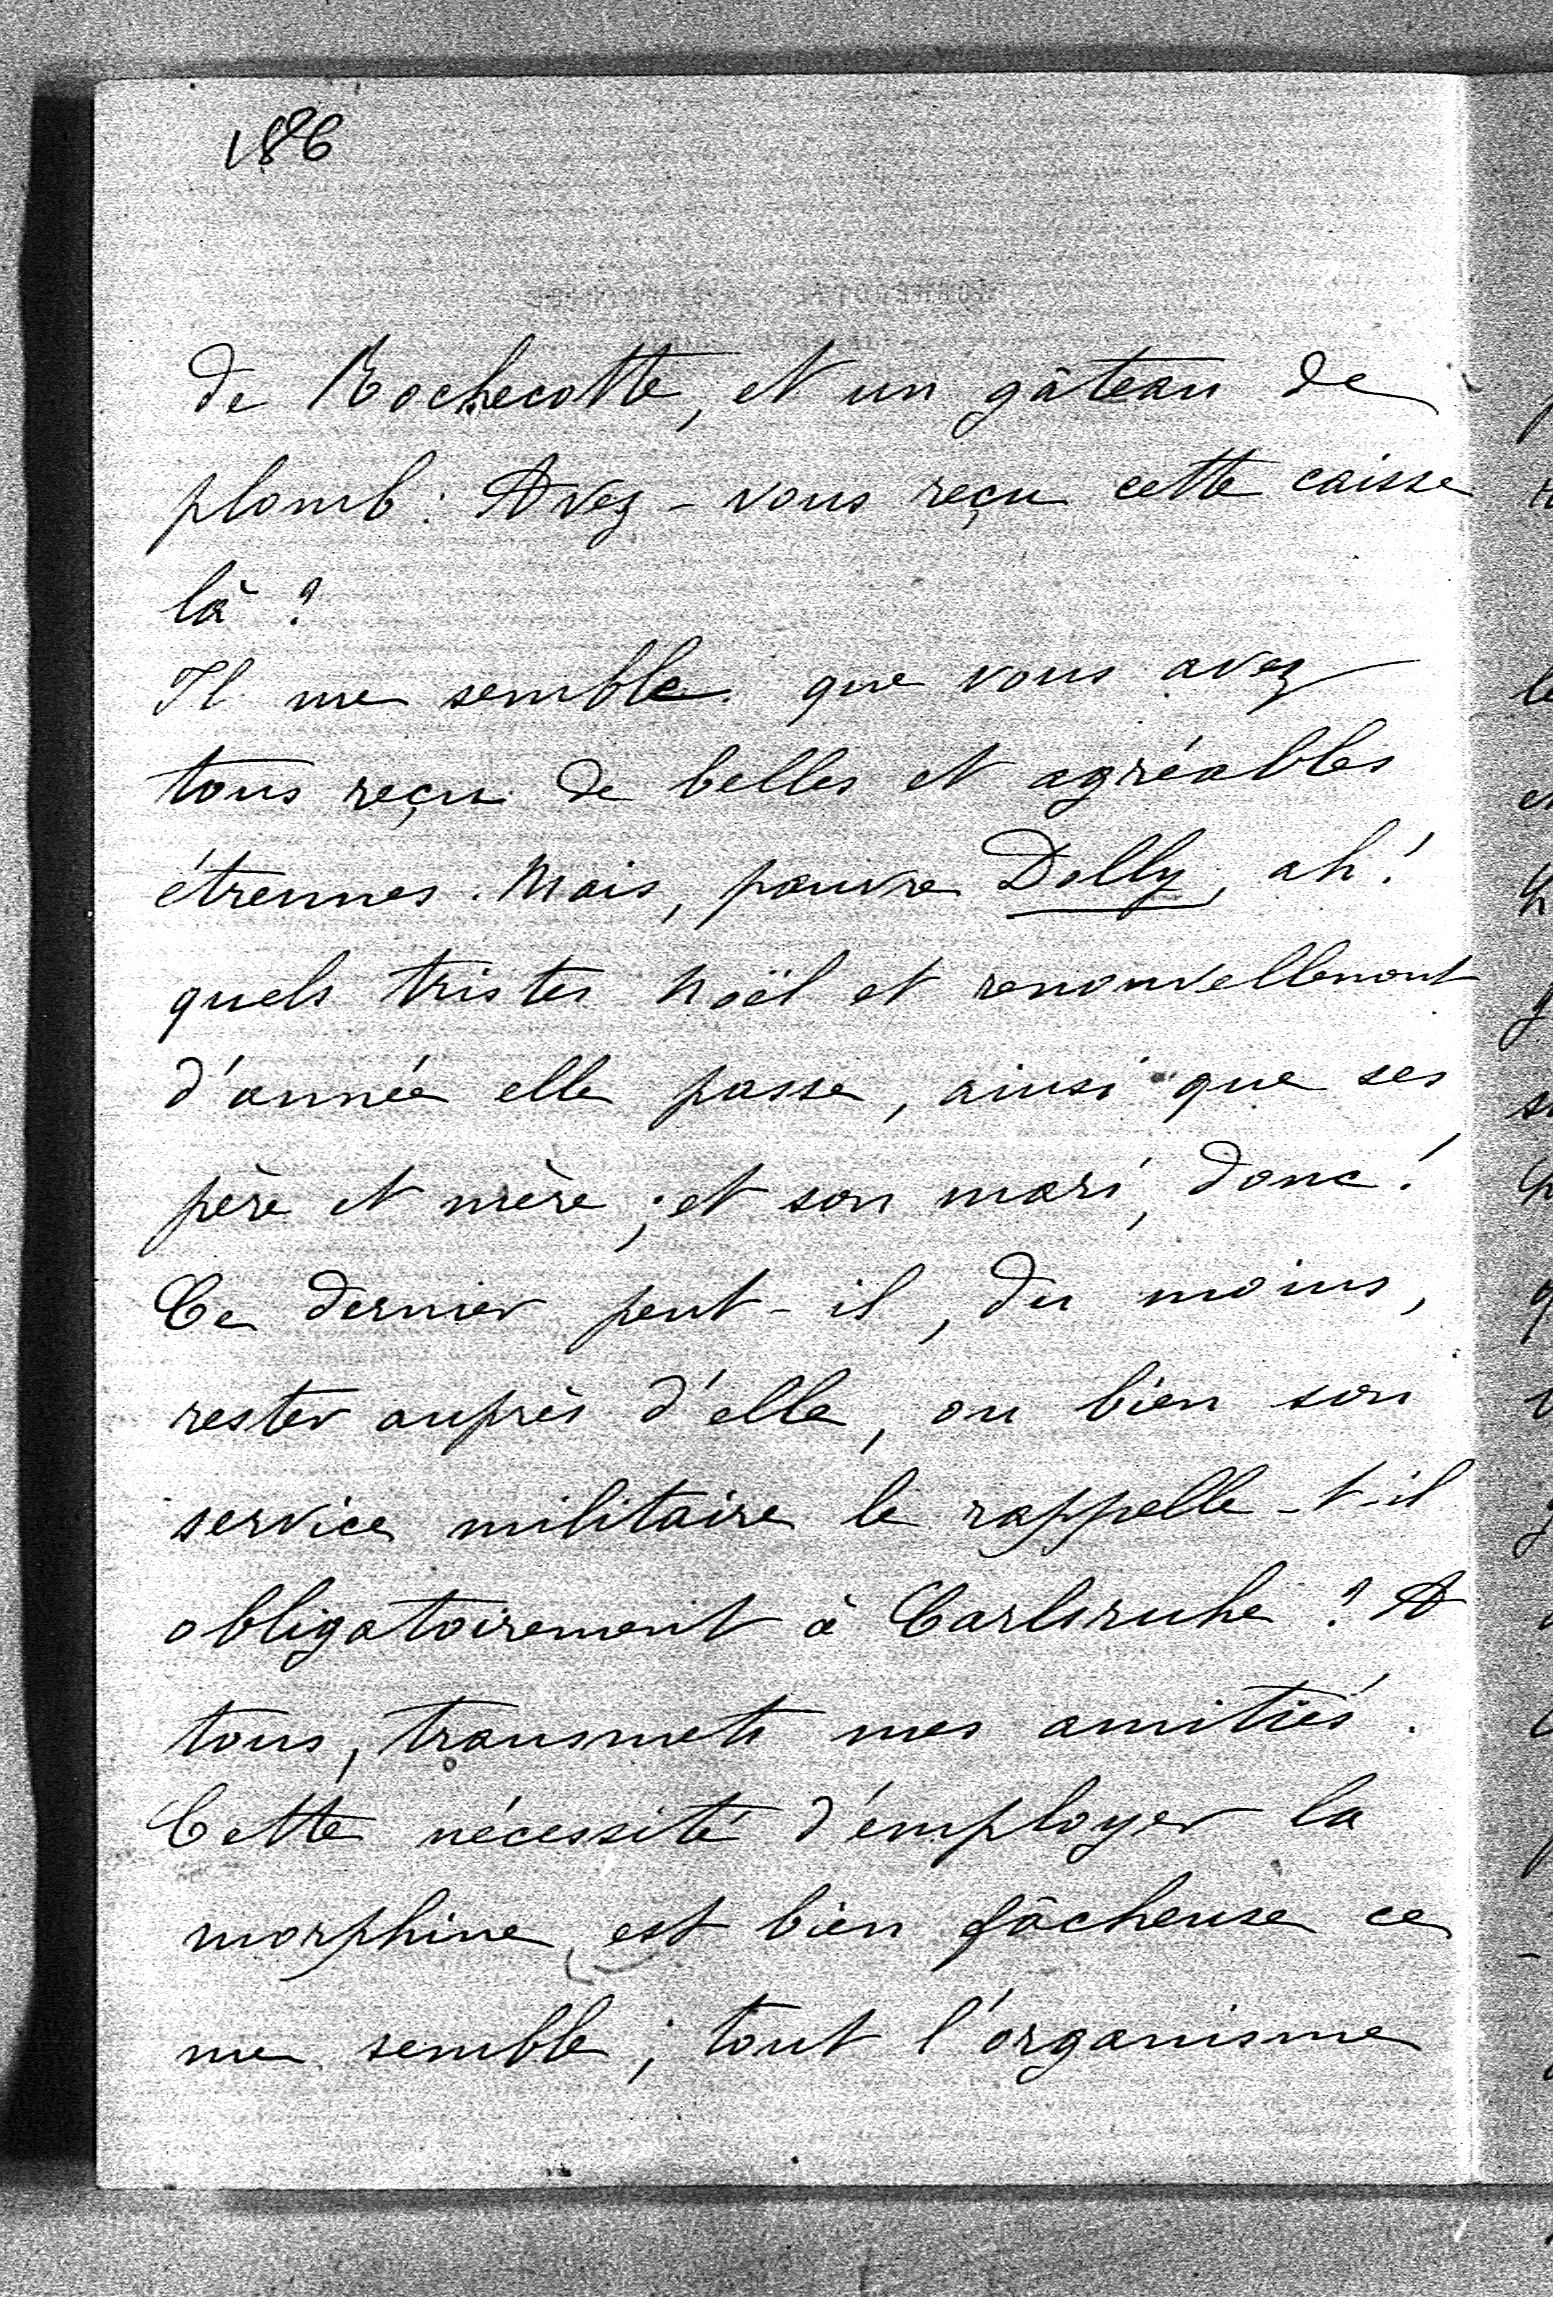 186
de Rochecotte, et un gâteau de
plomb : Avez-vous reçu cette caisse
là ?
Il me semble que vous avez
tous reçu de belles et agréables
étrennes. Mais, pauvre Dolly, ah !
quels tristes Noël et renouvellement
d'année elle passe, ainsi que ses
père et mère ; et son mari, donc !
Ce dernier peut-il, du moins,
rester auprès d'elle, ou bien son
service militaire le rappelle-t-il
obligatoirement à Carlsruhe ? A
tous, transmets mes amitiés.
Cette nécessité d'employer la
morphine est bien fâcheuse ce
me semble ; tout l'organisme